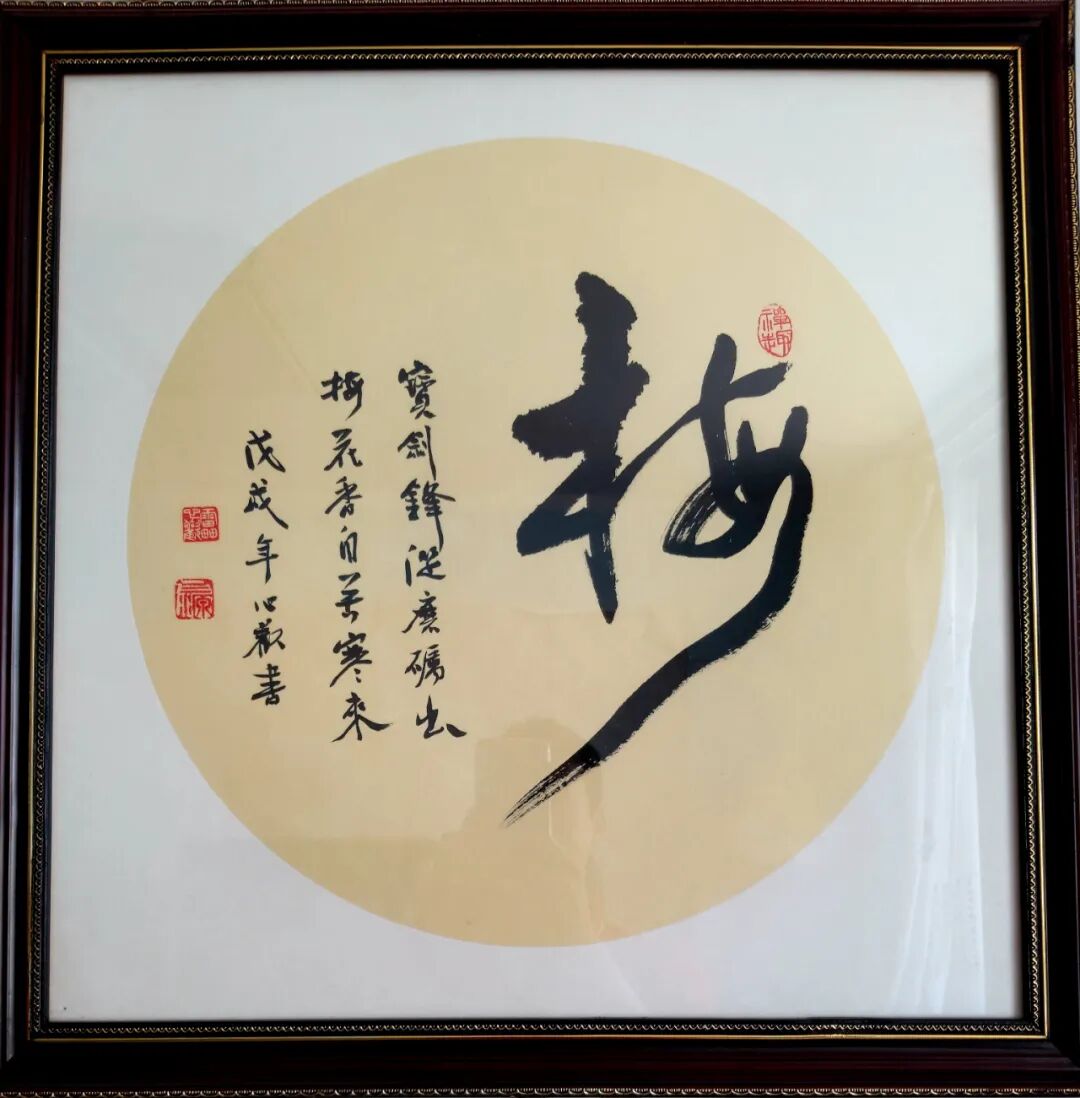 梅
寶劍鋒從磨礪出
梅花香自苦寒來
戊戌年心觀書